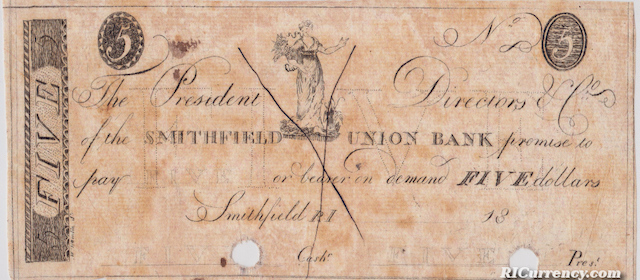 5 Nº 5
FIVE
The President Directors & Cº
of the SMITHFIELD UNION BANK promise to
pay or bearer on demand FIVE dollars
Smithfield R I 18
Cashr Prest
RICurrency.com